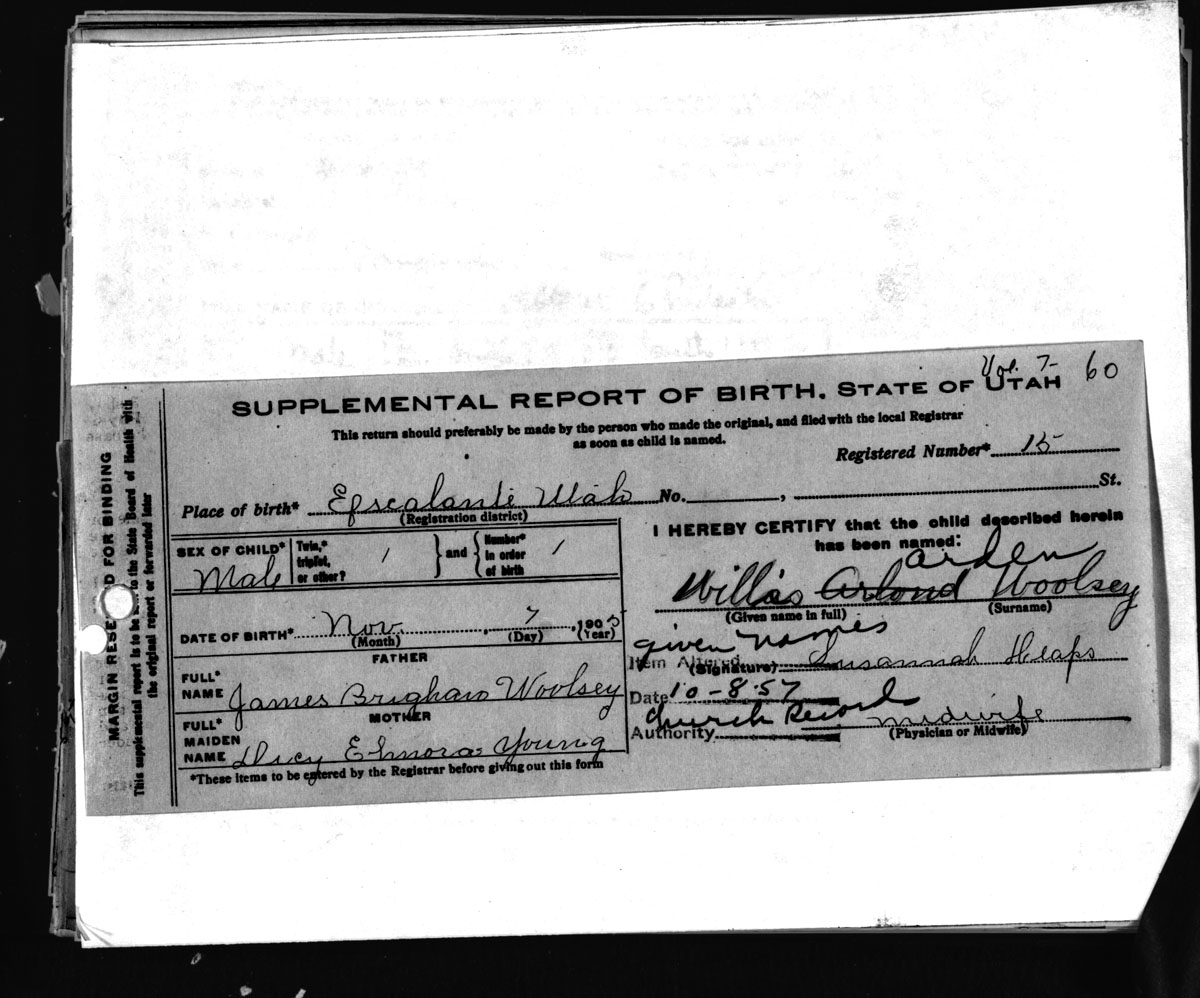 Vol. 7- 60
SUPPLEMENTAL REPORT OF BIRTH. STATE OF UTAH
This return should preferably be made by the person who made the original, and filed with the local Registrar
as soon as child is named.
Registered Number* 15
Place of birth* Escalante Utah No. , St.
(Registration district)
SEX OF CHILD* Male
Twin,* triplet, or other? 1 and Number* in order of birth 1
DATE OF BIRTH* Nov. , 7 , 1905
(Month) (Day) (Year)
FATHER
FULL* NAME James Brigham Woolsey
MOTHER
FULL* MAIDEN NAME Dicy Elmora Young
*These items to be entered by the Registrar before giving out this form
I HEREBY CERTIFY that the child described herein
has been named:
Arden
Willis Arlond Woolsey
(Given name in full) (Surname)
given names
Item Altered
(Signature) Susannah Heaps
Date 10-8-57
Church Record
Authority
midwife
(Physician or Midwife)
MARGIN RESERVED FOR BINDING
This supplemental report is to be to the State Board of Health with
the original report or forwarded later